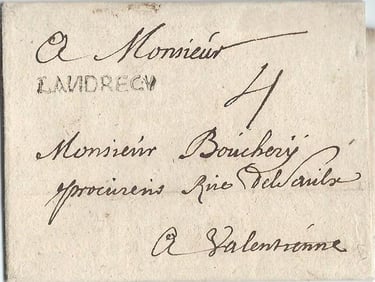 A Monsieur
LANDRECY
4
Monsieur Bouchery
procureus Rüe
A Valentienne